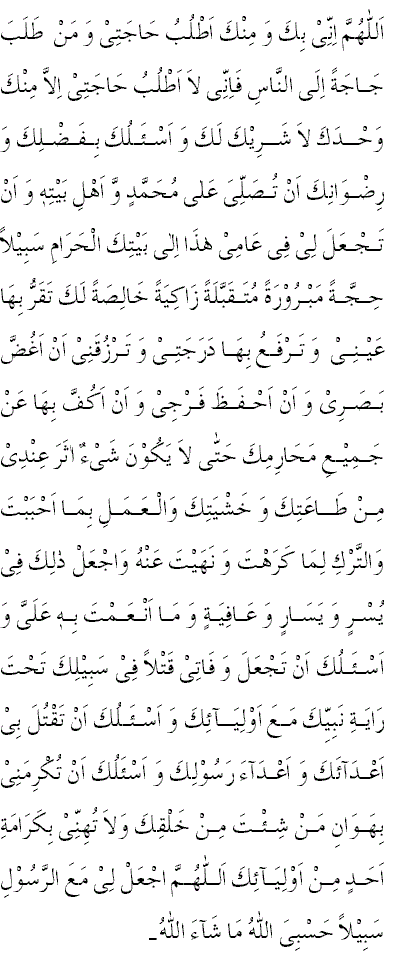 اَللّٰهُمَّ اِنِّیْ بِكَ وَ مِنْكَ اَطْلُبُ حَاجَتِیْ وَ مَنْ طَلَبَ
حَاجَةً اِلَی النَّاسِ فَاِنِّی لاَ اَطْلُبُ حَاجَتِیْ اِلاَّ مِنْكَ
وَحْدَكَ لاَ شَرِیْكَ لَكَ وَ اَسْئَلُكَ بِفَضْلِكَ وَ
رِضْوَانِكَ اَنْ تُصَلِّیَ عَلٰی مُحَمَّدٍ وَّ اَهْلِ بَیْتِهٖ وَ اَنْ
تَجْعَلَ لِیْ فِی عَامِیْ هٰذَا اِلٰی بَیْتِكَ الْحَرَامِ سَبِیْلاً
حِجَّةً مَبْرُوْرَةً مُتَقَبَّلَةً زَاكِیَةً خَالِصَةً لَكَ تَقَرُّ بِهَا
عَیْنِیْ وَ تَرْفَعُ بِهَا دَرَجَتِیْ وَ تَرْزُقَنِیْ اَنْ اَغُضَّ
بَصَرِیْ وَ اَنْ اَحْفَظَ فَرْجِیْ وَ اَنْ اَكُفَّ بِهَا عَنْ
جَمِیْعِ مَحَارِمِكَ حَتّٰی لاَ یَكُوْنَ شَیْءٌ اٰثَرَ عِنْدِیْ
مِنْ طَاعَتِكَ وَ خَشْیَتِكَ وَالْعَمَلِ بِمَا اَحْبَبْتَ
وَالتَّرْكِ لِمَا كَرَهْتَ وَ نَهَیْتَ عَنْهُ وَاجْعَلْ ذٰلِكَ فِیْ
یُسْرٍ وَ یَسَارٍ وَ عَافِیَةٍ وَ مَا اَنْعَمْتَ بِهٖ عَلَیَّ وَ
اَسْئَلُكَ اَنْ تَجْعَلَ وَ فَاتِیْ قَتْلاً فِیْ سَبِیْلِكَ تَحْتَ
رَایَةِ نَبِیِّكَ مَعَ اَوْلِیَآئِكَ وَ اَسْئَلُكَ اَنْ تَقْتُلَ بِیْ
اَعْدَآئَكَ وَ اَعْدَآءَ رَسُوْلِكَ وَ اَسْئَلُكَ اَنْ تُكْرِمَنِیْ
بِهَوَانِ مَنْ شِئْتَ مِنْ خَلْقِكَ وَلاَ تُهِنِّیْ بِكَرَامَةِ
اَحَدٍ مِنْ اَوْلِیَآئِكَ اَللّٰهُمَّ اجْعَلْ لِیْ مَعَ الرَّسُوْلِ
سَبِیْلاً حَسْبِیَ اللهُ مَا شَآءَ اللهُ۔